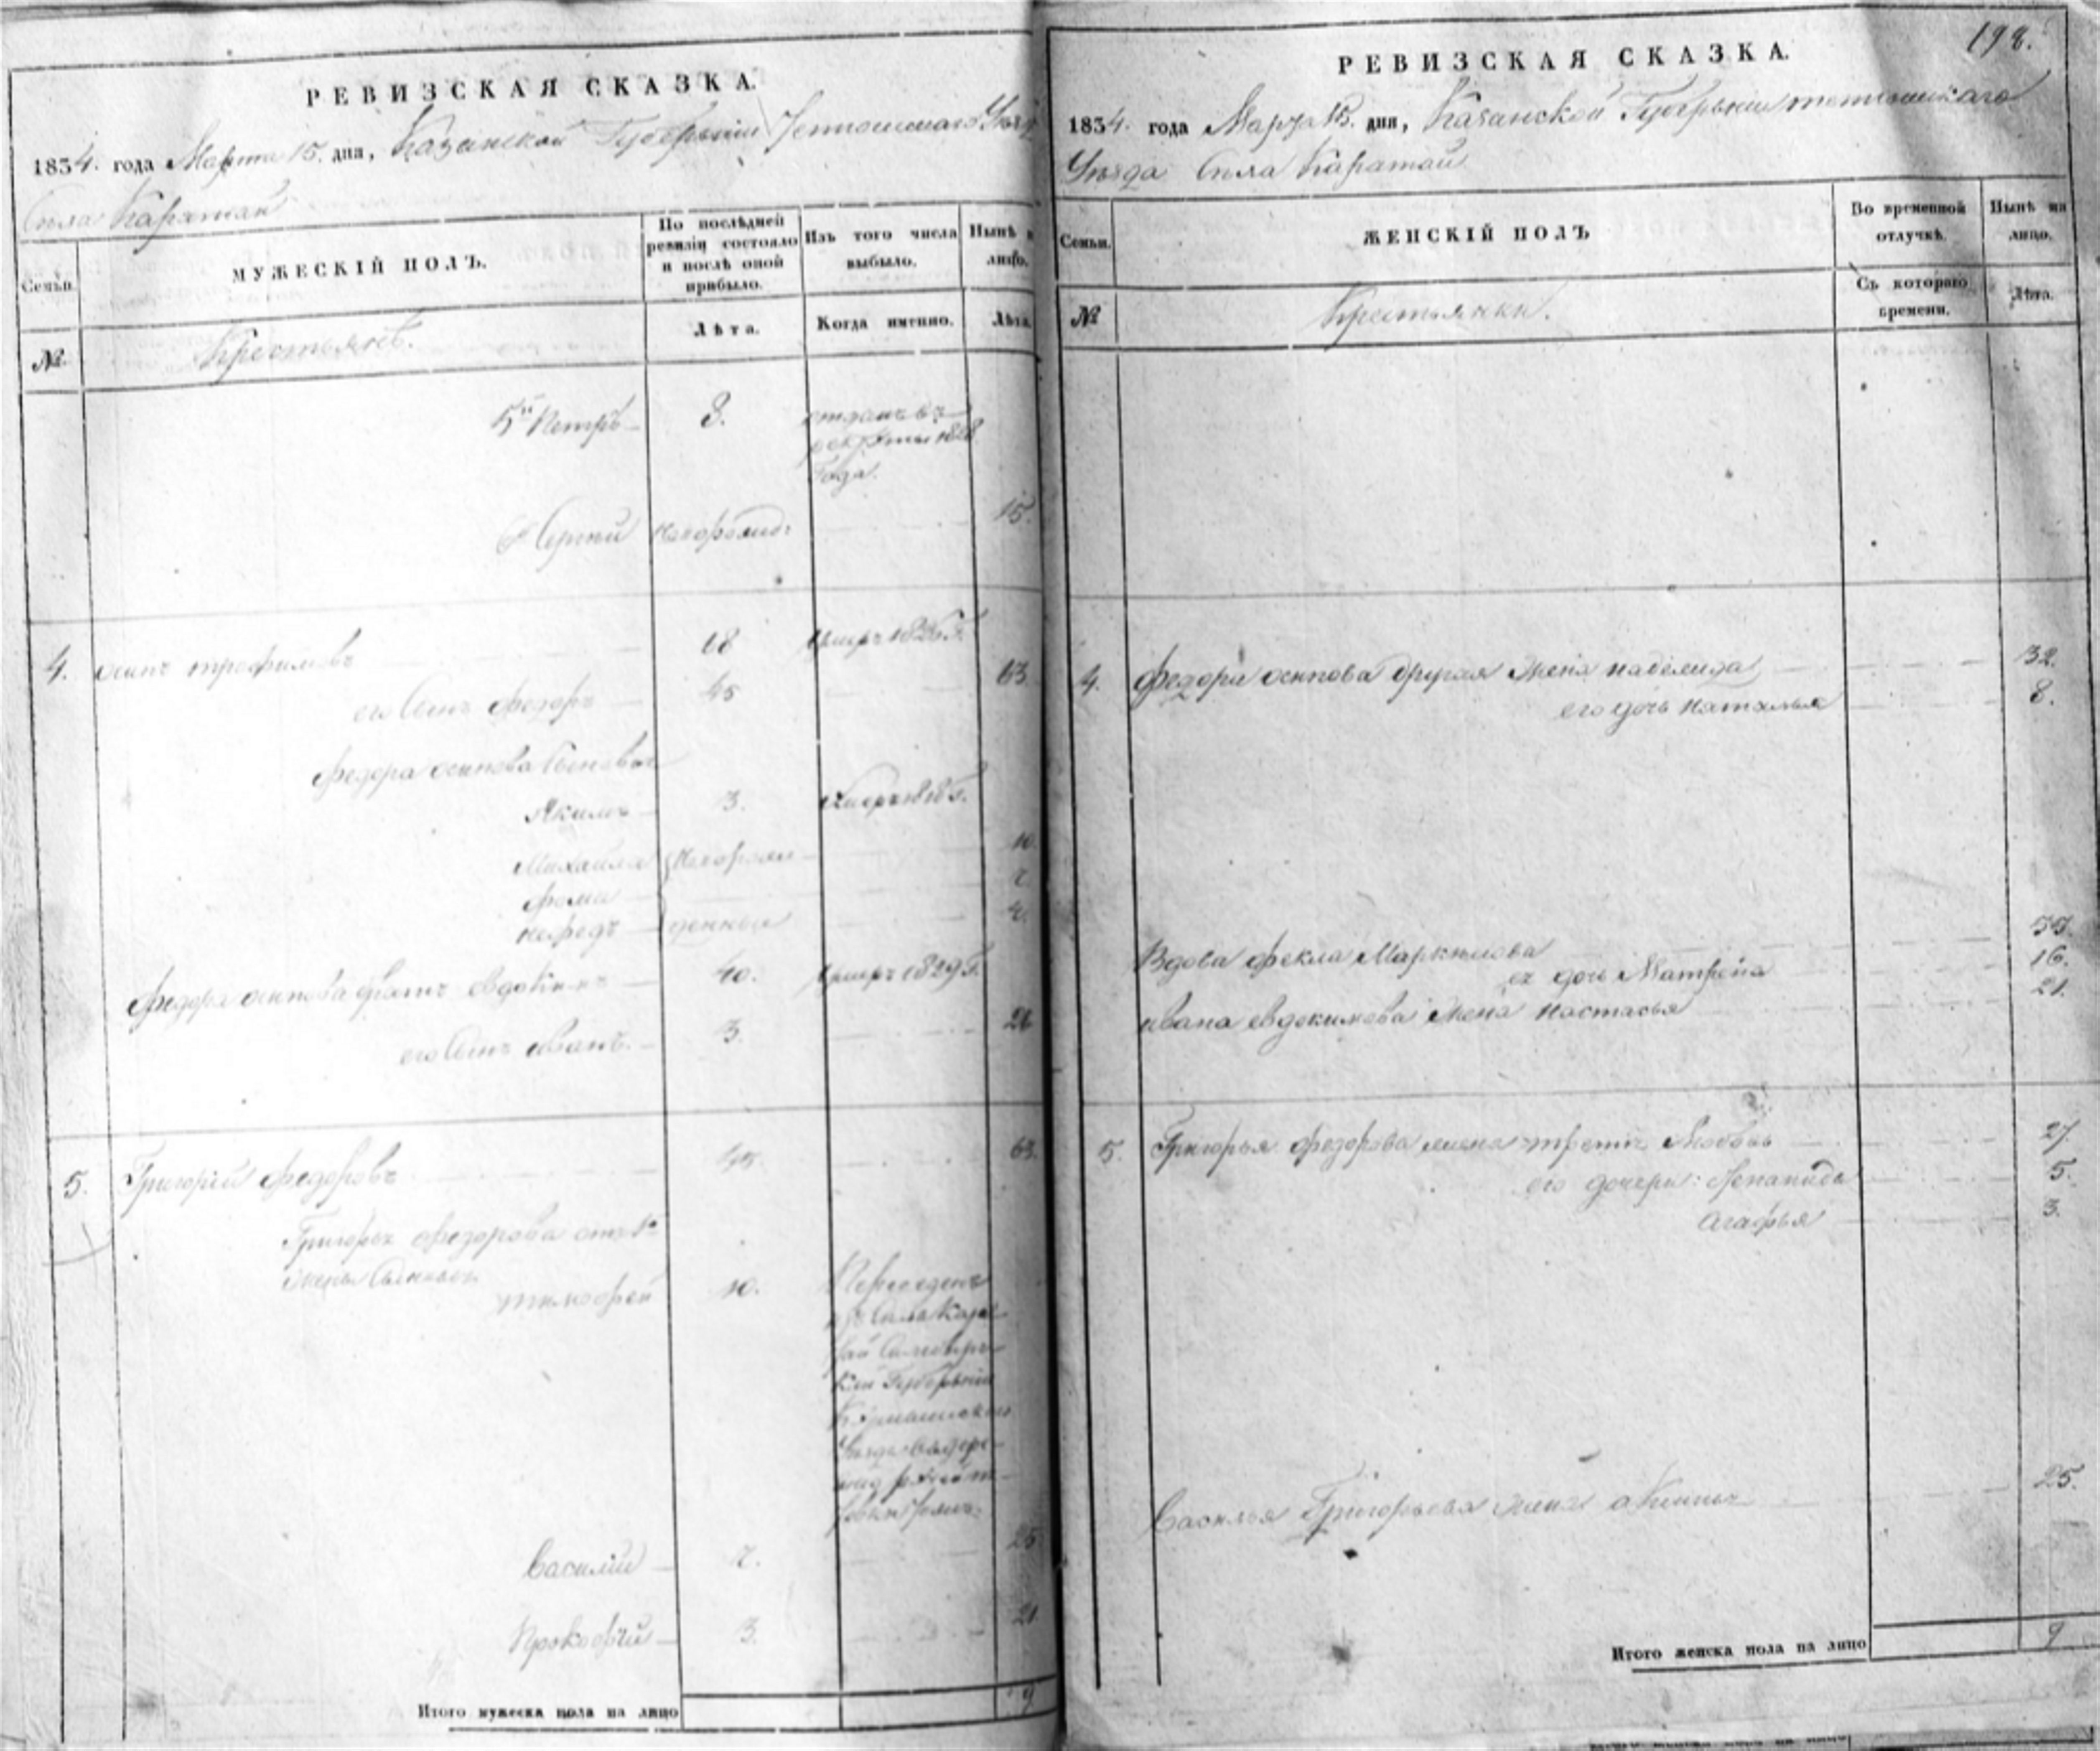 РЕВИЗСКАЯ СКАЗКА.
1834. года Марта 15. дня, Казанской Губерніи Тетюшскаго Уѣзд
Села Каратай
Семьи.
МУЖЕСКІЙ ПОЛЪ.
По послѣдней
ревизіи состояло
и послѣ оной
прибыло.
Изъ того числа
выбыло.
Нынѣ н
лицо.
№
Крестьянъ.
Лѣта.
Когда именно.
Лѣта.
5й Петръ 8. отданъ въ
рекруты 1828
Года.
6й Сергѣй новорожд: 15.
4. осипъ трофимовъ 18 умеръ 1826 Г.
его Сынъ федоръ 45 63.
федера осипова Сыновья
Якимъ 3. умеръ 1818 Г.
Михайла новорож 10.
фома 7.
нефедъ денные 4.
федора осипова братъ евдокимъ 40. умеръ 1829 Г.
его Сынъ иванъ. 3. 21
5. Григорій федоровъ 45. 63.
Григорья федорова отъ 1й
жены Сыновья
тимофей 10. Переведенъ
изъ Села Кара
тай Симбирс
кой Губерніи
Уѣзда въ дере
Василій 7. 25
Прокофій 3. 21
Итого мужеска пола на лицо 9
198.
РЕВИЗСКАЯ СКАЗКА.
1834. года Марта 15. дня, Казанской Губерніи тетюшскаго
Уѣзда Села Каратай
Семьи.
ЖЕНСКІЙ ПОЛЪ
Во временной
отлучкѣ.
Нынѣ на
лицо.
№
Крестьянки.
Съ котораго
времени.
Лѣта.
4. федора осипова другая жена 32.
его дочь наталья 8.
Вдова фекла Маркелова 55.
ея дочь Матрена 16.
ивана евдокимова жена настасья 21.
5. Григорья федорова жена третья Любовь 27.
его дочери: Степанида 5.
агафья 3.
Василья Григорьева жена 25.
Итого женска пола на лицо 9